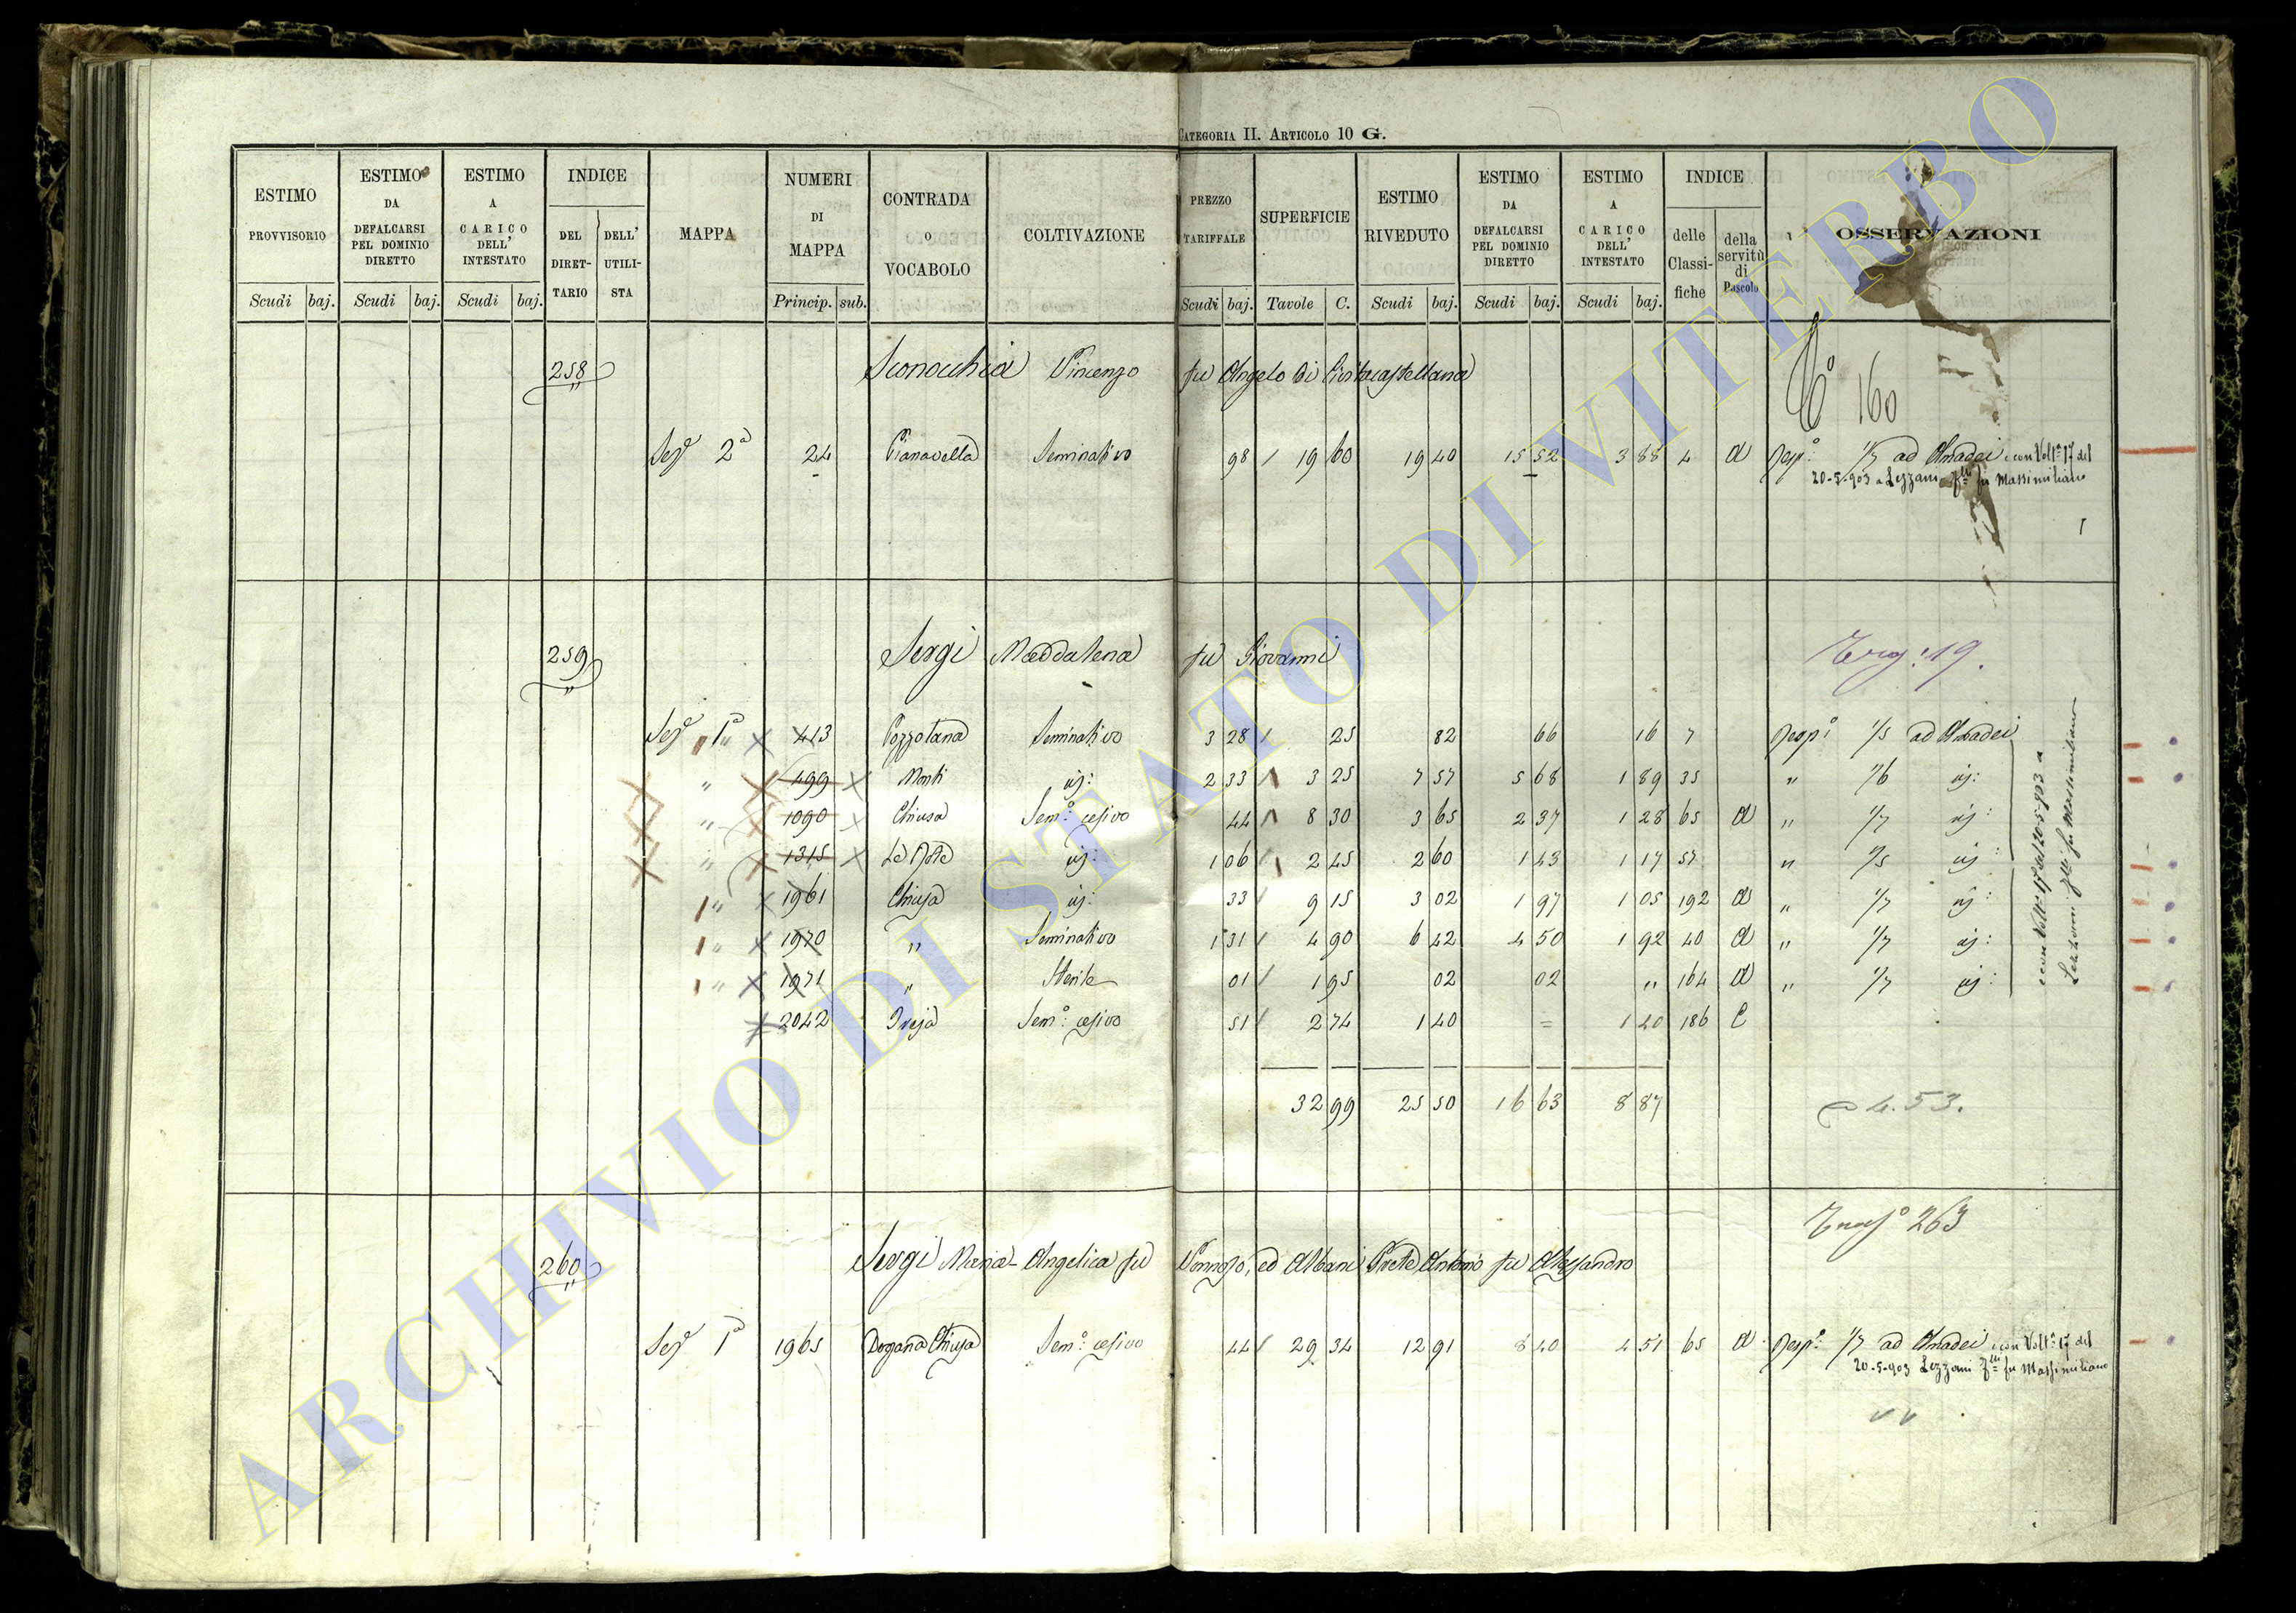 CATEGORIA II. ARTICOLO 10 G.
ESTIMO PROVVISORIO Scudi baj.
ESTIMO DA DEFALCARSI PEL DOMINIO DIRETTO Scudi baj.
ESTIMO A CARICO DELL' INTESTATO Scudi baj.
INDICE DEL DIRET-TARIO DELL' UTILI-STA
MAPPA
NUMERI DI MAPPA Princip. sub.
CONTRADA O VOCABOLO
COLTIVAZIONE
PREZZO TARIFFALE Scudi baj.
SUPERFICIE Tavole C.
ESTIMO RIVEDUTO Scudi baj.
ESTIMO DA DEFALCARSI PEL DOMINIO DIRETTO Scudi baj.
ESTIMO A CARICO DELL' INTESTATO Scudi baj.
INDICE delle Classi-fiche della servitù di Pascolo
OSSERVAZIONI
258 Sconocchia Vincenzo fu Angelo di Civitacastellana
160
Sez 2a 24 Pianavella Seminativo 98 / 19 60 19 40 15 52 3 88 4 a Resp: 1/5 ad Amadei e con Volt: 17 del
20-5-903 a Lezzani Flli fu Massimiliano
259 Sergi Maddalena fu Giovanni
Sez 1a 413 Pozzotana Seminativo 3 28 / 25 82 66 16 7 Resp: 1/5 ad Amadei
" 499 Monti id: 2 33 / 3 25 7 57 5 68 1 89 35 " 1/6 id:
" 1090 Chiusa Sem: cesivo 44 / 8 30 3 65 2 37 1 28 65 a " 1/7 id:
" 1315 id: 1 06 / 2 45 2 60 1 43 1 17 57 " 1/5 id:
" 1961 Chiusa id: 33 / 9 15 3 02 1 97 1 05 192 a " 1/7 id:
" 1970 " Seminativo 1 31 / 4 90 6 42 4 50 1 92 40 a " 1/7 id:
" 1971 " Sterile 01 / 1 95 02 02 " 164 a " 1/7 id:
2042 Sem: cesivo 51 / 2 74 1 40 = 1 40 186 C
e con Volt: 17 del 20-5-903 a
Lezzani Flli fu Massimiliano
32 99 25 50 16 63 8 87
4.53.
263
260 Sergi Maria Angelica fu Vonnoso, ed Albani Prete Antonio fu Alessandro
Sez 1a 1965 Dogana Chiusa Sem: cesivo 44 / 29 34 12 91 8 40 4 51 65 a Resp: 1/7 ad Amadei e con Volt: 17 del
20-5-903 Lezzani Flli fu Massimiliano
ARCHIVIO DI STATO DI VITERBO